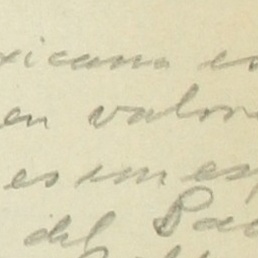 xicana es
en valore
es un esp
del Pac